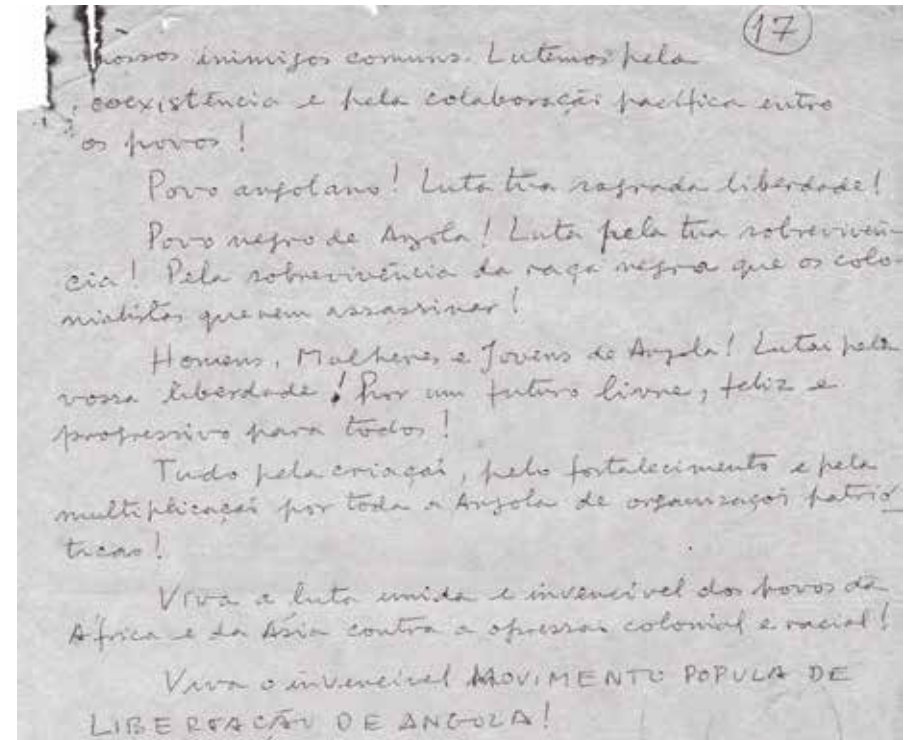 17
nossos inimigos comuns. Lutemos pela
coexistência e pela colaboração pacífica entre
os povos!
Povo angolano! Luta tua sagrada liberdade!
Povo negro de Angola! Luta pela tua sobrevivên-
cia! Pela sobrevivência da raça negra que os colo-
nialistas querem assassinar!
Homens, Mulheres e Jovens de Angola! Lutai pela
vossa liberdade! Por um futuro livre, feliz e
progressivo para todos!
Tudo pela criaçaõ, pelo fortalecimento e pela
multiplicaçaõ por toda a Angola de organizações patrió-
ticas!
Viva a luta unida e invencível dos povos da
África e da Ásia contra a opressaõ colonial e racial!
Viva o invencível MOVIMENTO POPULA DE
LIBERTAÇÃO DE ANGOLA!